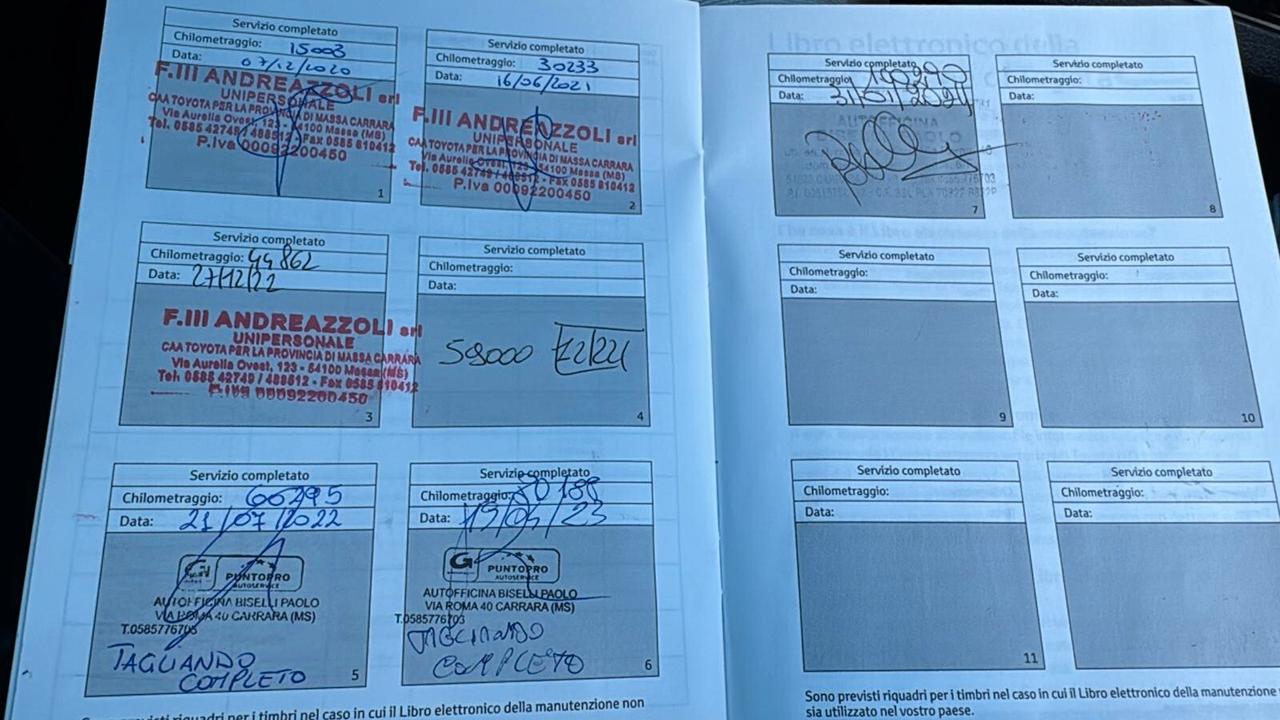 Servizio completato
Chilometraggio: 15003
Data: 07/12/2020
F.lli ANDREAZZOLI srl
UNIPERSONALE
CAA TOYOTA PER LA PROVINCIA DI MASSA CARRARA
Via Aurelia Ovest, 123 - 54100 Massa (MS)
Tel. 0585 42749 / 488512 - Fax 0585 810412
P.iva 00092200450
1
Servizio completato
Chilometraggio: 30233
Data: 16/06/2021
F.lli ANDREAZZOLI srl
UNIPERSONALE
CAA TOYOTA PER LA PROVINCIA DI MASSA CARRARA
Via Aurelia Ovest, 123 - 54100 Massa (MS)
Tel. 0585 42749 / 488512 - Fax 0585 810412
P.iva 00092200450
2
Servizio completato
Chilometraggio: 44862
Data: 27/12/22
F.lli ANDREAZZOLI srl
UNIPERSONALE
CAA TOYOTA PER LA PROVINCIA DI MASSA CARRARA
Via Aurelia Ovest, 123 - 54100 Massa (MS)
Tel. 0585 42749 / 488512 - Fax 0585 810412
P.iva 00092200450
3
Servizio completato
Chilometraggio:
Data:
4
Servizio completato
Chilometraggio: 66295
Data: 21/07/2022
PUNTOPRO
AUTOSERVICE
AUTOFFICINA BISELLI PAOLO
VIA ROMA 40 CARRARA (MS)
T.0585776703
TAGLIANDO
COMPLETO
5
Servizio completato
Chilometraggio: 80188
Data: 19/04/23
G
PUNTOPRO
AUTOSERVICE
AUTOFFICINA BISELLI PAOLO
VIA ROMA 40 CARRARA (MS)
T.0585776703
TAGLIANDO
COMPLETO
6
previsti riquadri per i timbri nel caso in cui il Libro elettronico della manutenzione non
Servizio completato
Chilometraggio: 100290
Data: 31/01/2024
AUTOFFICINA
7
Servizio completato
Chilometraggio:
Data:
8
Servizio completato
Chilometraggio:
Data:
9
Servizio completato
Chilometraggio:
Data:
10
Servizio completato
Chilometraggio:
Data:
11
Servizio completato
Chilometraggio:
Data:
Sono previsti riquadri per i timbri nel caso in cui il Libro elettronico della manutenzione
sia utilizzato nel vostro paese.